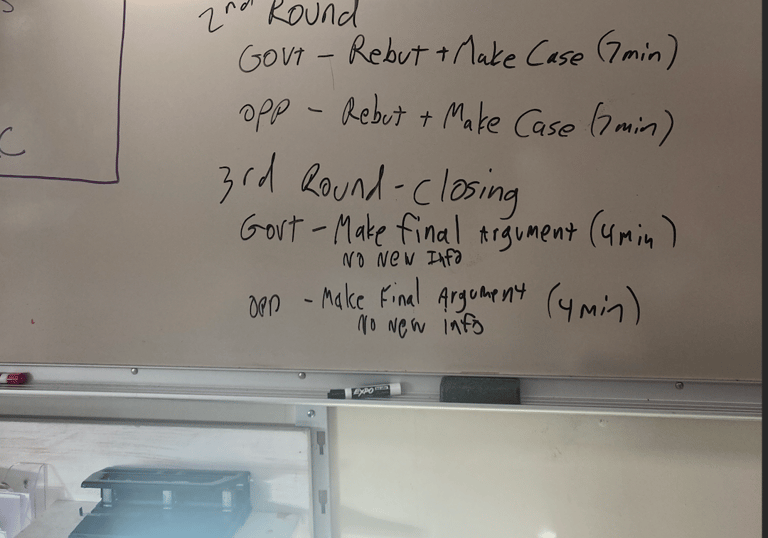 2nd Round
GOVT - Rebut + Make Case (7min)
OPP - Rebut + Make Case (7min)
3rd Round - Closing
GOVT - Make Final Argument (4min)
NO NEW Info
OPP - Make Final Argument (4min)
NO NEW Info
C
EXPO